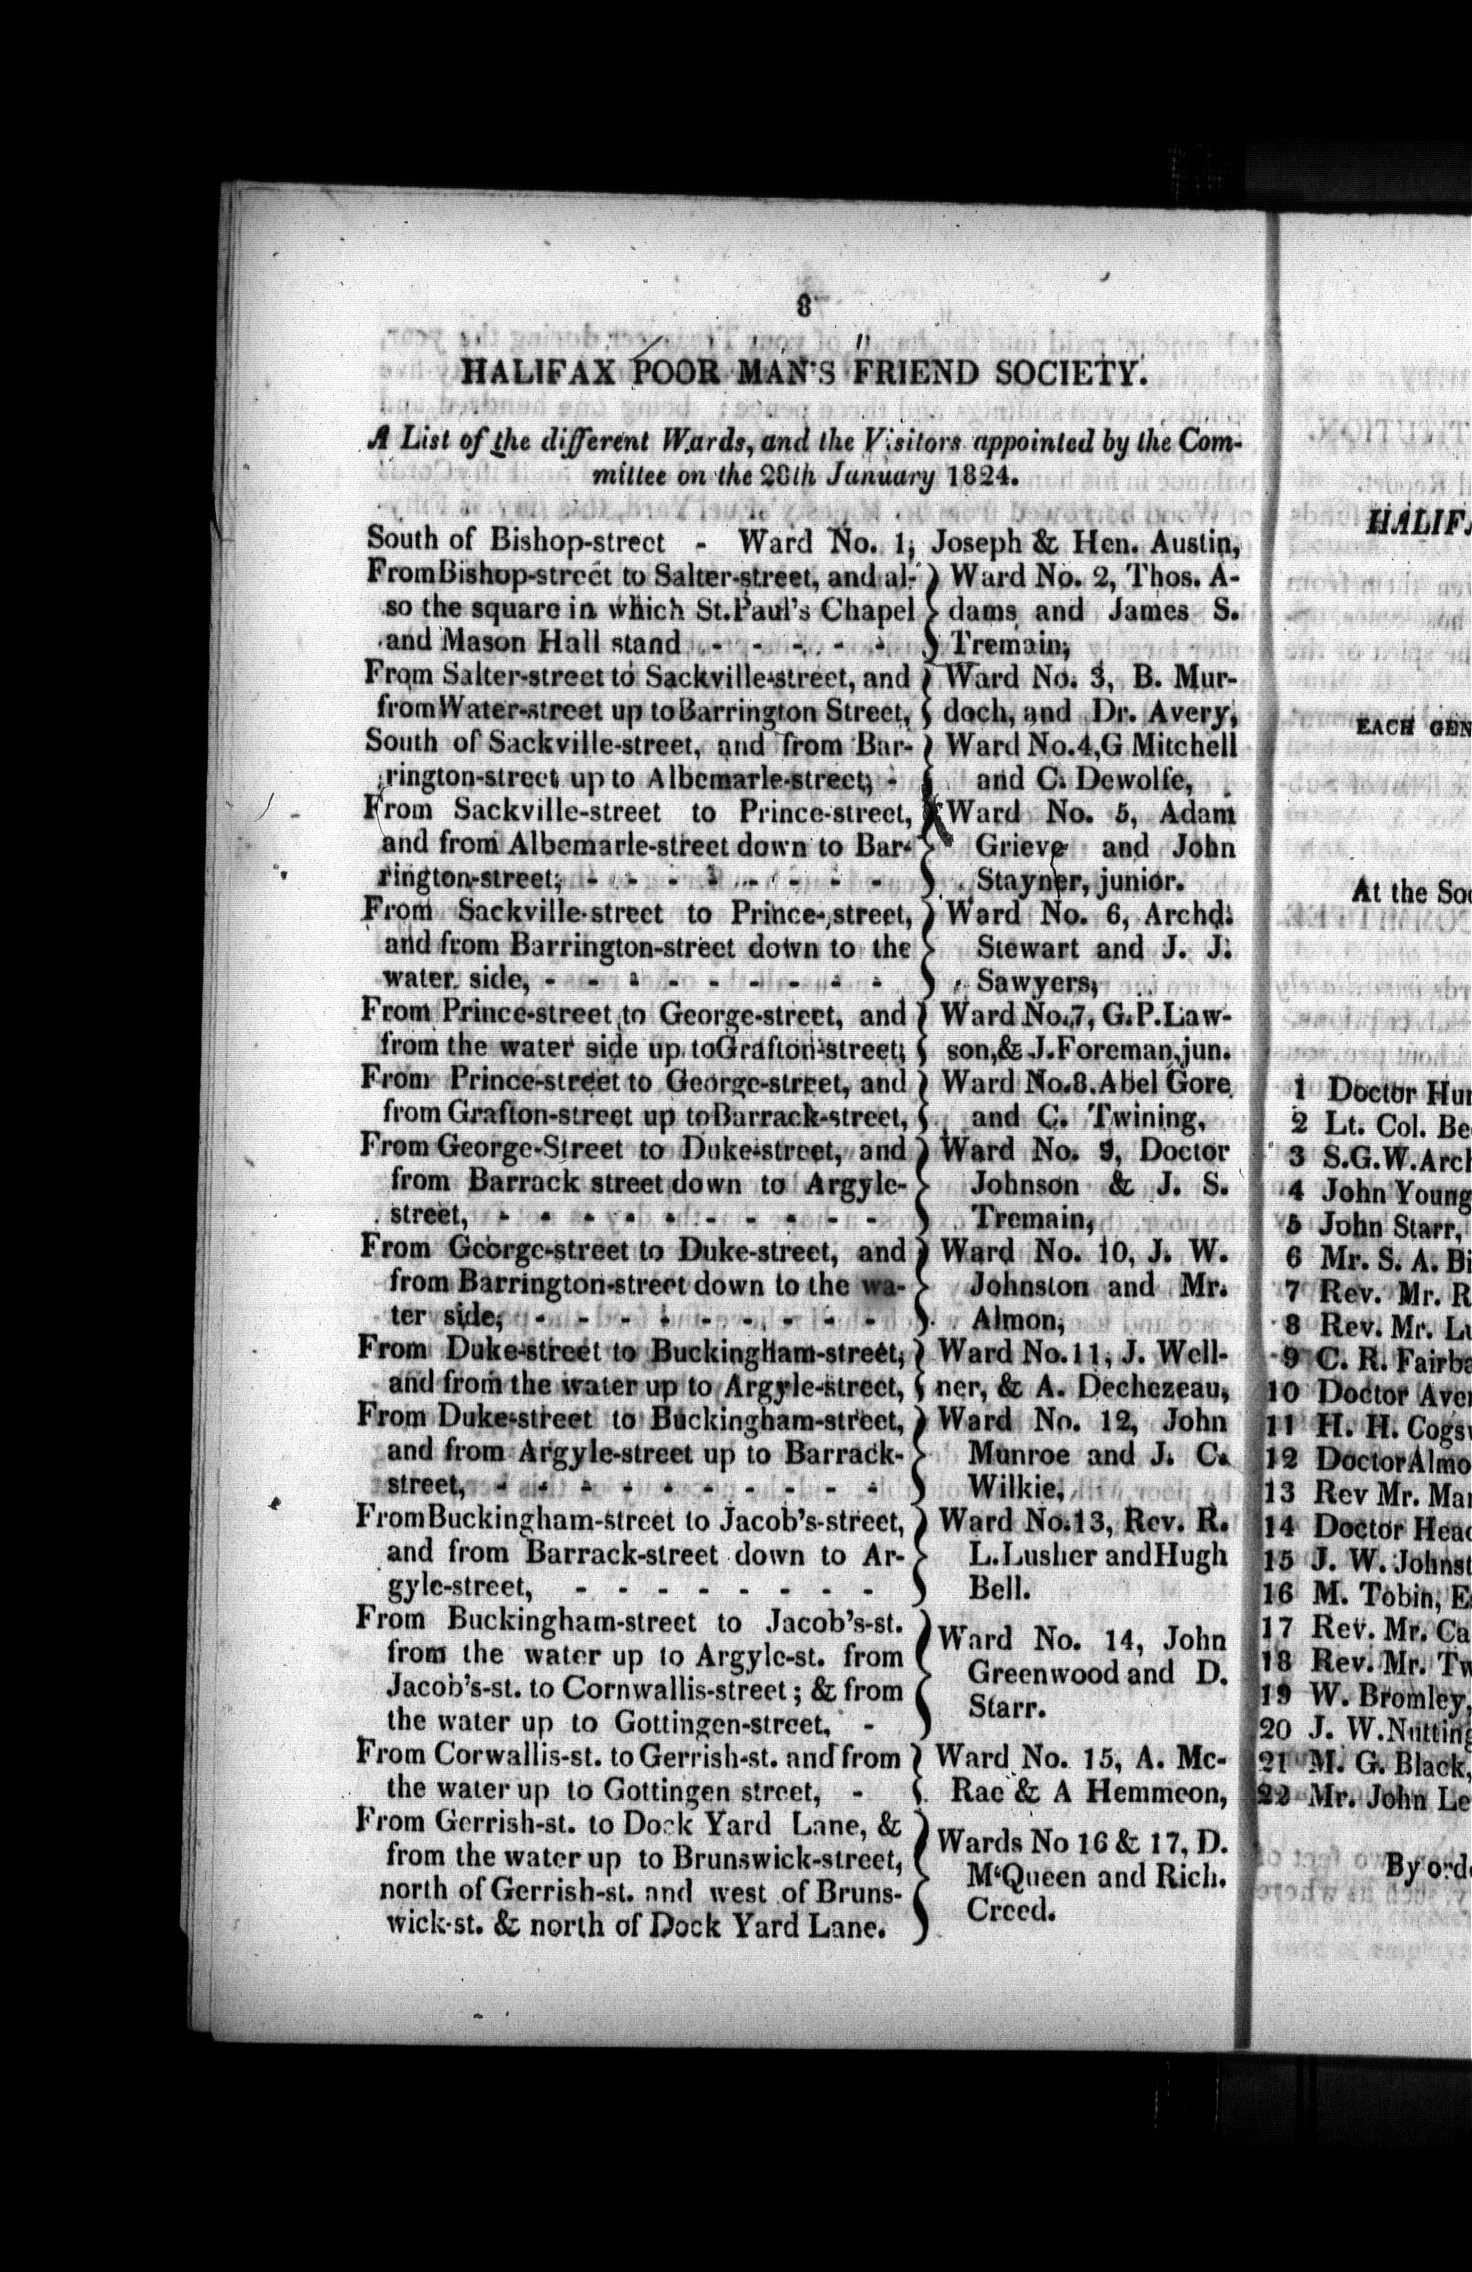 8
HALIFAX POOR MAN'S FRIEND SOCIETY.
A List of the different Wards, and the Visitors appointed by the Com-
mittee on the 28th January 1824.
South of Bishop-street - Ward No. 1, Joseph & Hen. Austin,
From Bishop-street to Salter-street, and al-
so the square in which St. Paul's Chapel
and Mason Hall stand - - - - -
Ward No. 2, Thos. A-
dams and James S.
Tremain,
From Salter-street to Sackville-street, and
from Water-street up to Barrington Street,
Ward No. 3, B. Mur-
doch, and Dr. Avery,
South of Sackville-street, and from Bar-
rington-street up to Albemarle-street, -
Ward No. 4, G Mitchell
and C. Dewolfe,
From Sackville-street to Prince-street,
and from Albemarle-street down to Bar-
rington-street, - - - - - - - -
Ward No. 5, Adam
Grieve and John
Stayner, junior.
From Sackville-street to Prince-street,
and from Barrington-street down to the
water side, - - - - - - - - -
Ward No. 6, Archd.
Stewart and J. J.
Sawyers,
From Prince-street to George-street, and
from the water side up to Grafton-street,
Ward No. 7, G. P. Law-
son, & J. Foreman, jun.
From Prince-street to George-street, and
from Grafton-street up to Barrack-street,
Ward No. 8. Abel Gore
and C. Twining,
From George-Street to Duke-street, and
from Barrack street down to Argyle-
street, - - - - - - - - - -
Ward No. 9, Doctor
Johnson & J. S.
Tremain,
From George-street to Duke-street, and
from Barrington-street down to the wa-
ter side, - - - - - - - - -
Ward No. 10, J. W.
Johnston and Mr.
Almon,
From Duke-street to Buckingham-street,
and from the water up to Argyle-street,
Ward No. 11, J. Well-
ner, & A. Dechezeau,
From Duke-street to Buckingham-street,
and from Argyle-street up to Barrack-
street, - - - - - - - - - -
Ward No. 12, John
Munroe and J. C.
Wilkie,
From Buckingham-street to Jacob's-street,
and from Barrack-street down to Ar-
gyle-street, - - - - - - - -
Ward No. 13, Rev. R.
L. Lusher and Hugh
Bell.
From Buckingham-street to Jacob's-st.
from the water up to Argyle-st. from
Jacob's-st. to Cornwallis-street; & from
the water up to Gottingen-street, -
Ward No. 14, John
Greenwood and D.
Starr.
From Corwallis-st. to Gerrish-st. and from
the water up to Gottingen street, -
Ward No. 15, A. Mc-
Rae & A Hemmeon,
From Gerrish-st. to Dock Yard Lane, &
from the water up to Brunswick-street,
north of Gerrish-st. and west of Bruns-
wick-st. & north of Dock Yard Lane.
Wards No 16 & 17, D.
M'Queen and Rich.
Creed.
HALIF
EACH GEN
At the Soc
1 Doctor Hun
2 Lt. Col. Be
3 S.G.W. Arch
4 John Young
5 John Starr,
6 Mr. S. A. Bi
7 Rev. Mr. R
8 Rev. Mr. Lu
9 C. R. Fairba
10 Doctor Aver
11 H. H. Cogsw
12 Doctor Almo
13 Rev Mr. Mar
14 Doctor Head
15 J. W. Johnst
16 M. Tobin, E
17 Rev. Mr. Ca
18 Rev. Mr. Tw
19 W. Bromley,
20 J. W. Nutting
21 M. G. Black,
22 Mr. John Le
By orde